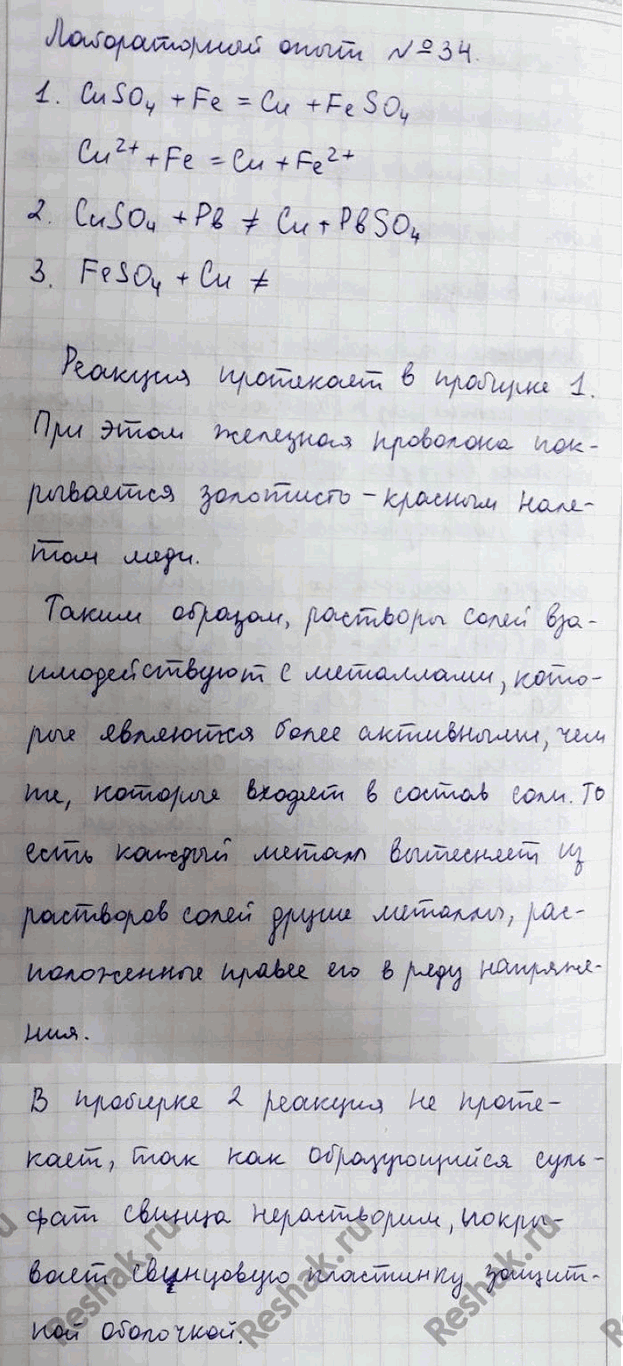 Лабораторный опыт №34.
1. CuSO₄ + Fe = Cu + FeSO₄
Cu²⁺ + Fe = Cu + Fe²⁺
2. CuSO₄ + Pb ≠ Cu + PbSO₄
3. FeSO₄ + Cu ≠
Реакция протекает в пробирке 1.
При этом железная проволока пок-
рывается золотисто-красным нале-
том меди.
Таким образом, растворы солей вза-
имодействуют с металлами, кото-
рые являются более активными, чем
те, которые входят в состав соли. То
есть каждый металл вытесняет из
растворов солей другие металлы, рас-
положенные правее его в ряду напряже-
ния.
В пробирке 2 реакция не проте-
кает, так как образующийся суль-
фат свинца нерастворим, покры-
вает свинцовую пластинку защит-
ной оболочкой.
Reshak.ru
Reshak.ru
Reshak.ru